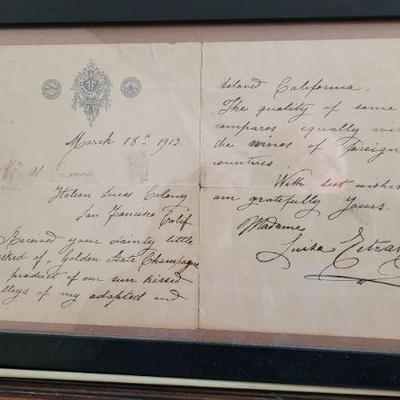 March 18th 1913.
Italian Swiss Colony
San Francisco Calif
Received your dainty little
of Golden State Champagne
product of our sun kissed
of my adopted and
Island California.
The quality of some
compares equally
the wines of foreign
countries
With best wishes
am gratefully Yours.
Madame
Luisa